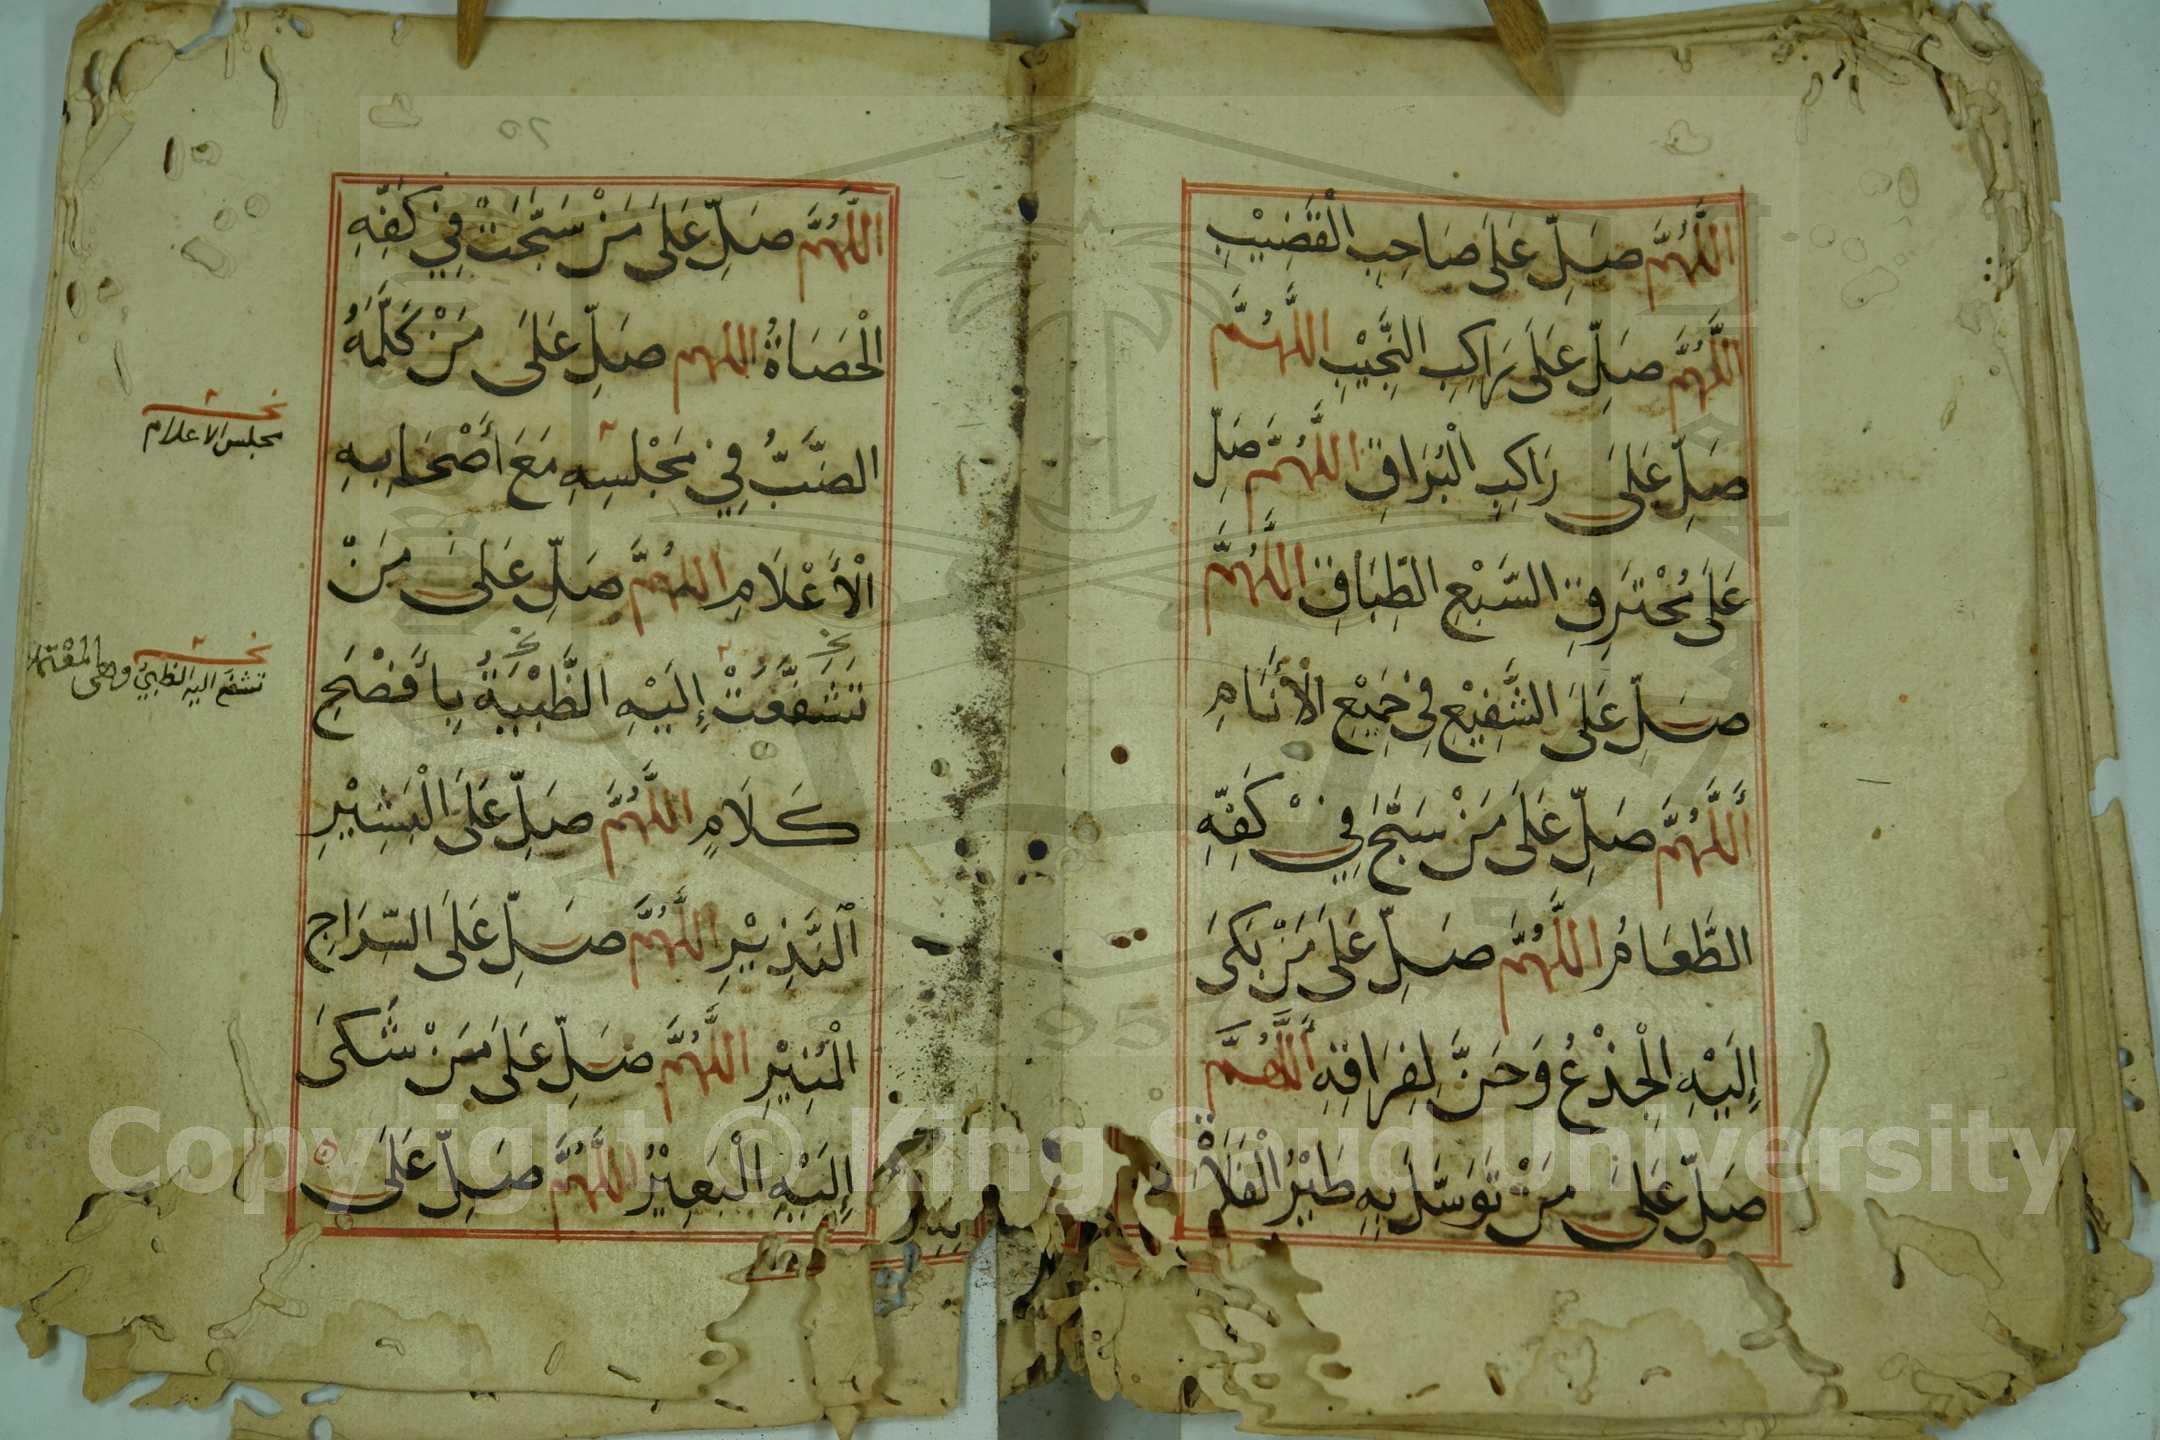 اَللّٰهُمَّ صَلِّ عَلَى صَاحِبِ الْقَضِيْبِ
اَللّٰهُمَّ صَلِّ عَلَى رَاكِبِ النَّجِيْبِ اَللّٰهُمَّ
صَلِّ عَلَى رَاكِبِ الْبُرَاقِ اَللّٰهُمَّ صَلِّ
عَلَى مُخْتَرِقِ السَّبْعِ الطِّبَاقِ اَللّٰهُمَّ
صَلِّ عَلَى الشَّفِيْعِ فِي جَمِيْعِ الْأَنَامِ
اَللّٰهُمَّ صَلِّ عَلَى مَنْ سَبَّحَ فِيْ كَفِّهِ
الطَّعَامُ اَللّٰهُمَّ صَلِّ عَلَى مَنْ بَكَى
إِلَيْهِ الْجِذْعُ وَحَنَّ لِفِرَاقِهِ اَللّٰهُمَّ
صَلِّ عَلَى مَنْ تَوَسَّلَ بِهِ طَيْرُ الْفَلَاةْ
٢٥
اَللّٰهُمَّ صَلِّ عَلَى مَنْ سَبَّحَتْ فِي كَفِّهِ
الْحَصَاةُ اَللّٰهُمَّ صَلِّ عَلَى مَنْ كَلَّمَهُ
الضَّبُّ فِي مَجْلِسِهِ مَعَ أَصْحَابِهِ
الْأَعْلَامِ اَللّٰهُمَّ صَلِّ عَلَى مَنْ
تَشَفَّعَتْ إِلَيْهِ الظَّبْيَةُ بِأَفْصَحِ
كَلَامٍ اَللّٰهُمَّ صَلِّ عَلَى الْبَشِيْرِ
اَلنَّذِيْرِ اَللّٰهُمَّ صَلِّ عَلَى السِّرَاجِ
الْمُنِيْرِ اَللّٰهُمَّ صَلِّ عَلَى مَنْ شَكَى
إِلَيْهِ الْبَعِيْرُ اَللّٰهُمَّ صَلِّ عَلَى
مجلس الاعلام
تشفع اليه الظبي
Copyright © King Saud University